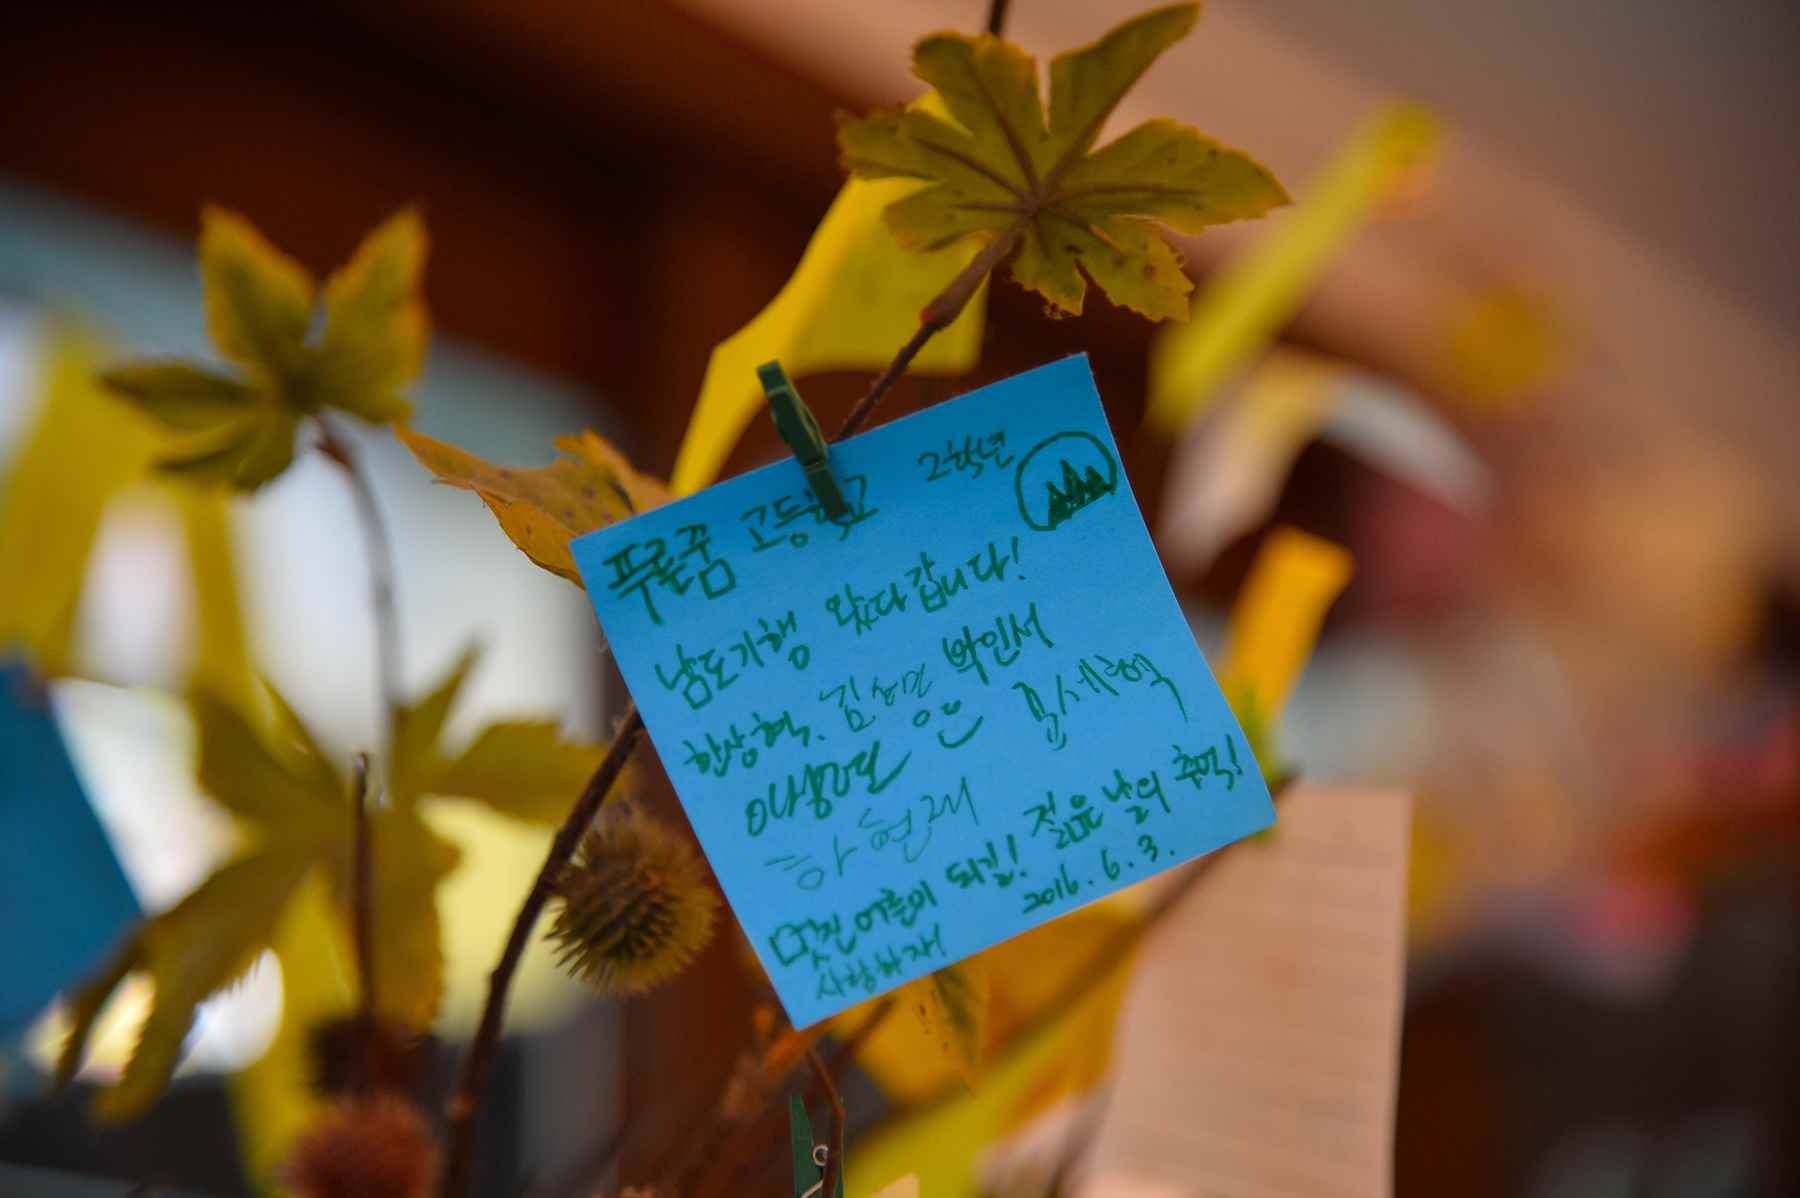 푸른꿈 고등학교 2학년
남도기행 왔다갑니다!
한상혁. 김성민 박인서
은
하현재
멋진 어른이 되길! 젊은 날의 추억!
사랑하자! 2016. 6. 3.